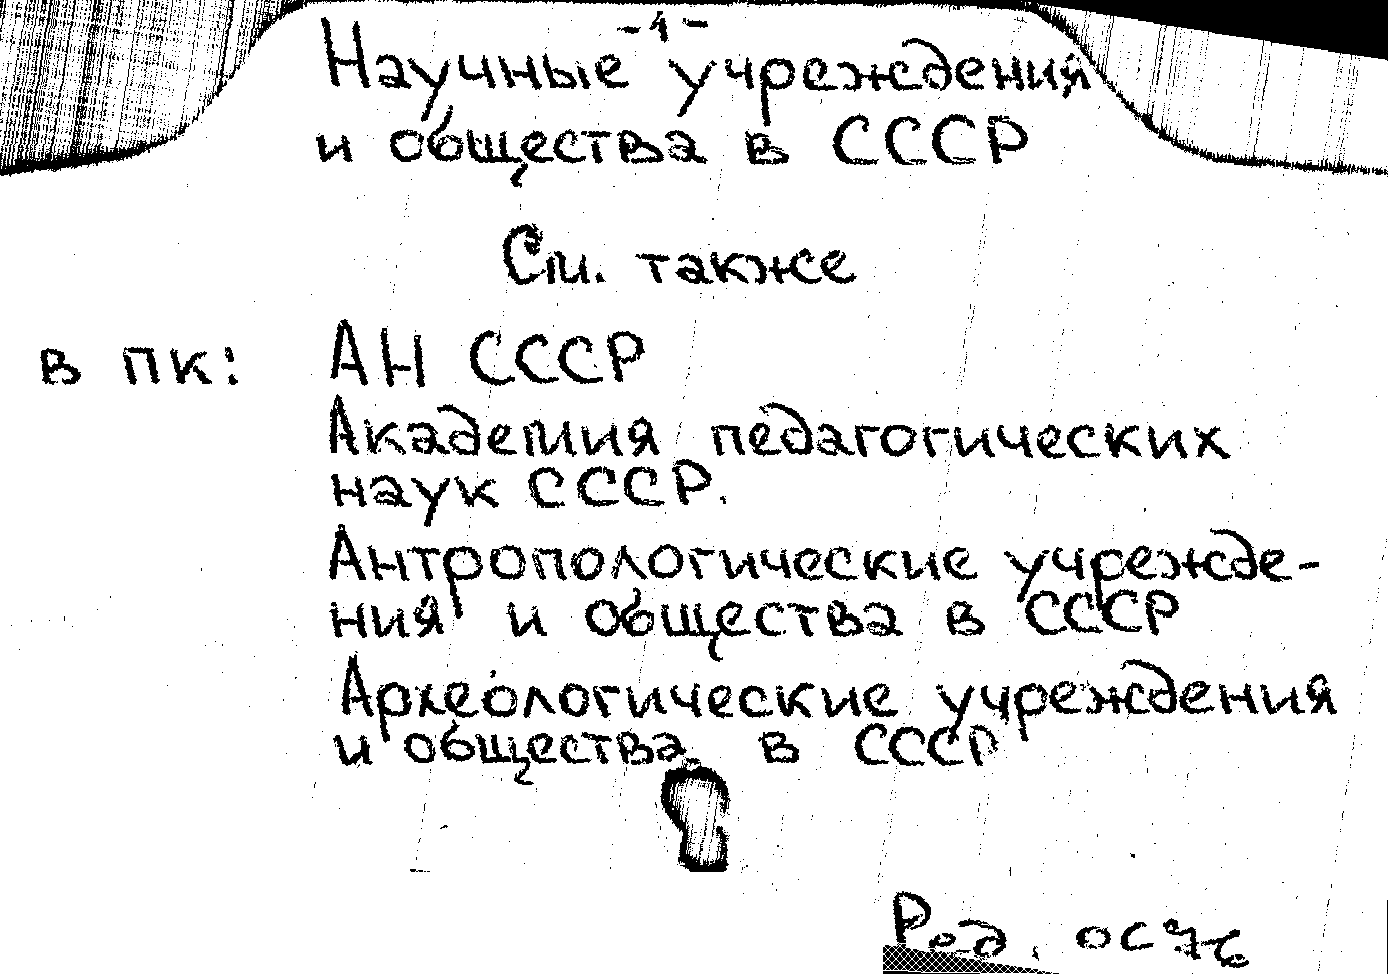 -4-
Научные учреждения
и общества в СССР
См. также
в ПК: АН СССР
Академия педагогических
наук СССР.
Антропологические учрежде-
ния и общества в СССР
Археологические учреждения
и общества в СССР
Ред.